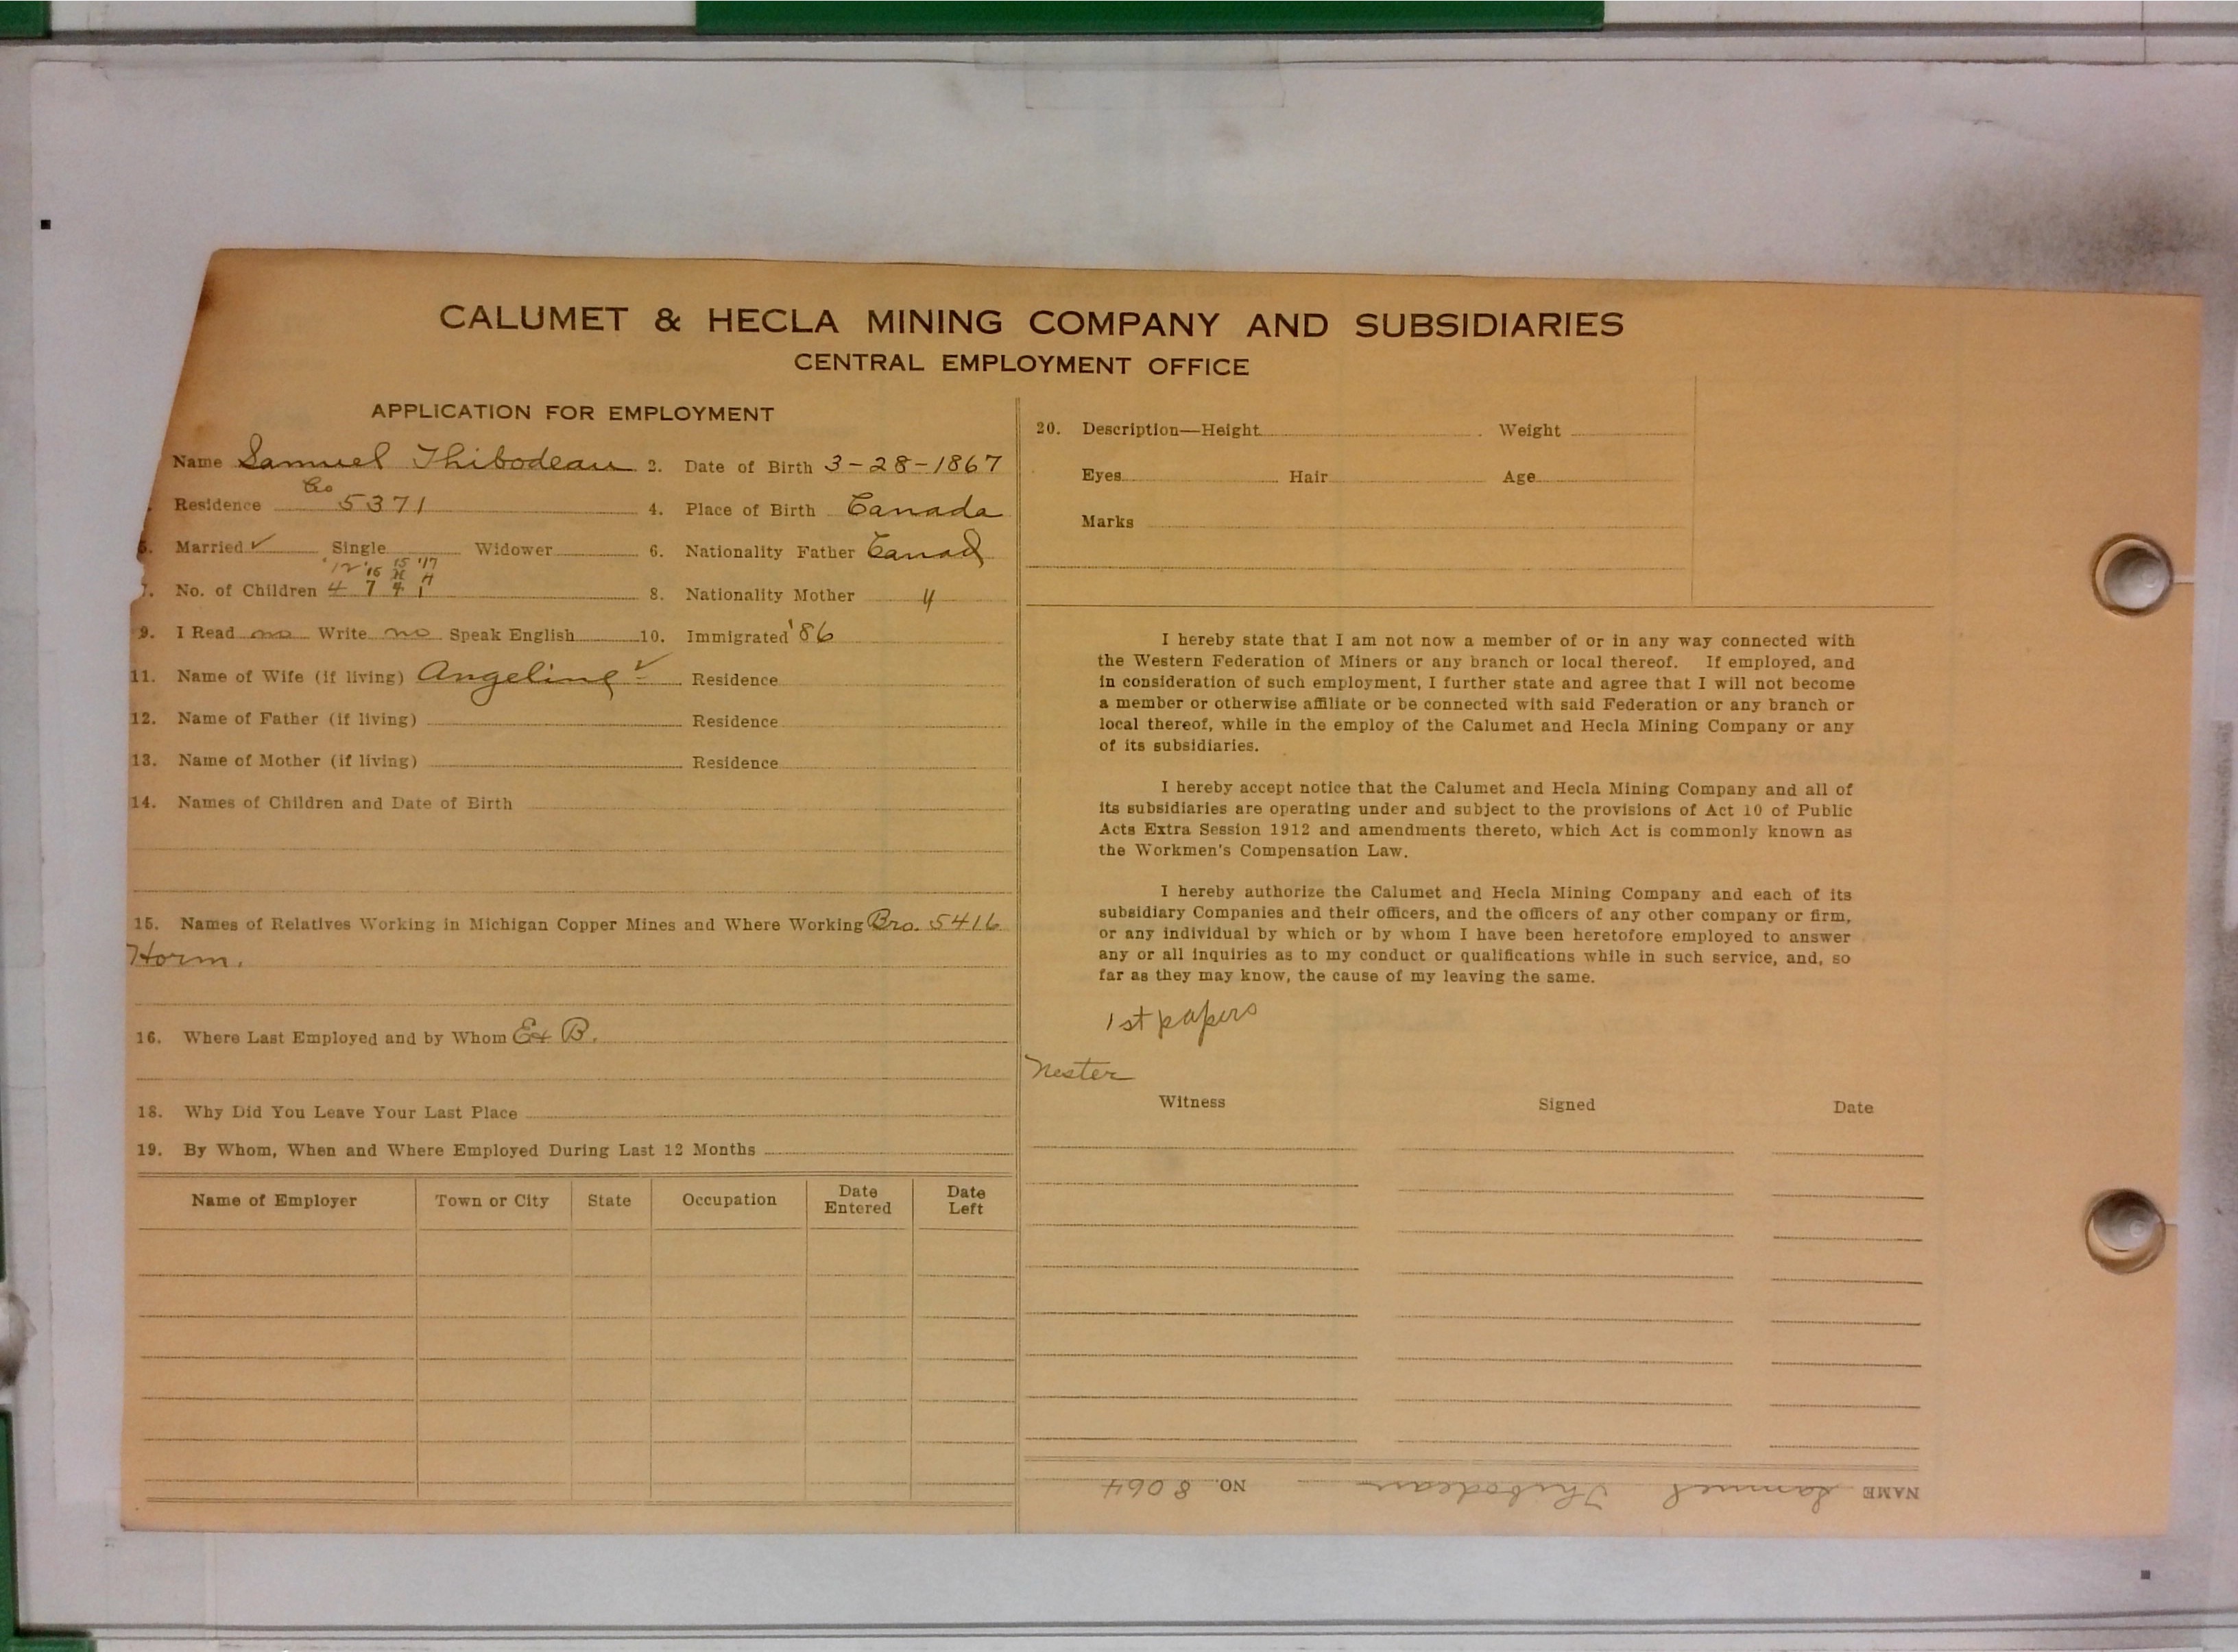 CALUMET & HECLA MINING COMPANY AND SUBSIDIARIES
CENTRAL EMPLOYMENT OFFICE
APPLICATION FOR EMPLOYMENT
Name Samuel Thibodeau 2. Date of Birth 3-28-1867
Co
Residence 5371 4. Place of Birth Canada
5. Married ✓ Single Widower 6. Nationality Father Canad
'12 '16 15 '17
7. No. of Children 4 7 4 1 8. Nationality Mother "
9. I Read no Write no Speak English 10. Immigrated '86
11. Name of Wife (if living) Angeline ✓ Residence
12. Name of Father (if living) Residence
13. Name of Mother (if living) Residence
14. Names of Children and Date of Birth
15. Names of Relatives Working in Michigan Copper Mines and Where Working Bro. 5416
Horm.
16. Where Last Employed and by Whom Ex B.
18. Why Did You Leave Your Last Place
19. By Whom, When and Where Employed During Last 12 Months
Name of Employer Town or City State Occupation Date Entered Date Left
20. Description—Height Weight
Eyes Hair Age
Marks
I hereby state that I am not now a member of or in any way connected with
the Western Federation of Miners or any branch or local thereof. If employed, and
in consideration of such employment, I further state and agree that I will not become
a member or otherwise affiliate or be connected with said Federation or any branch or
local thereof, while in the employ of the Calumet and Hecla Mining Company or any
of its subsidiaries.
I hereby accept notice that the Calumet and Hecla Mining Company and all of
its subsidiaries are operating under and subject to the provisions of Act 10 of Public
Acts Extra Session 1912 and amendments thereto, which Act is commonly known as
the Workmen's Compensation Law.
I hereby authorize the Calumet and Hecla Mining Company and each of its
subsidiary Companies and their officers, and the officers of any other company or firm,
or any individual by which or by whom I have been heretofore employed to answer
any or all inquiries as to my conduct or qualifications while in such service, and, so
far as they may know, the cause of my leaving the same.
1st papers
Nester
Witness Signed Date
NAME Samuel Thibodeau NO. 8064